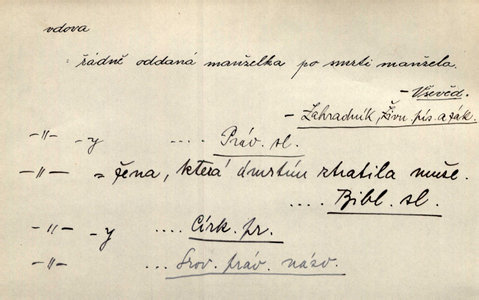 vdova
řádně oddaná manželka po smrti manžela.
- Vševěd.
- Zahradník, Živn. pís. a řák.
-"- -y .... Práv. sl.
-"- = žena, která úmrtím ztratila muže.
.... Bibl. sl.
-"- -y .... Círk. pr.
-"- ... Srov. práv. názv.